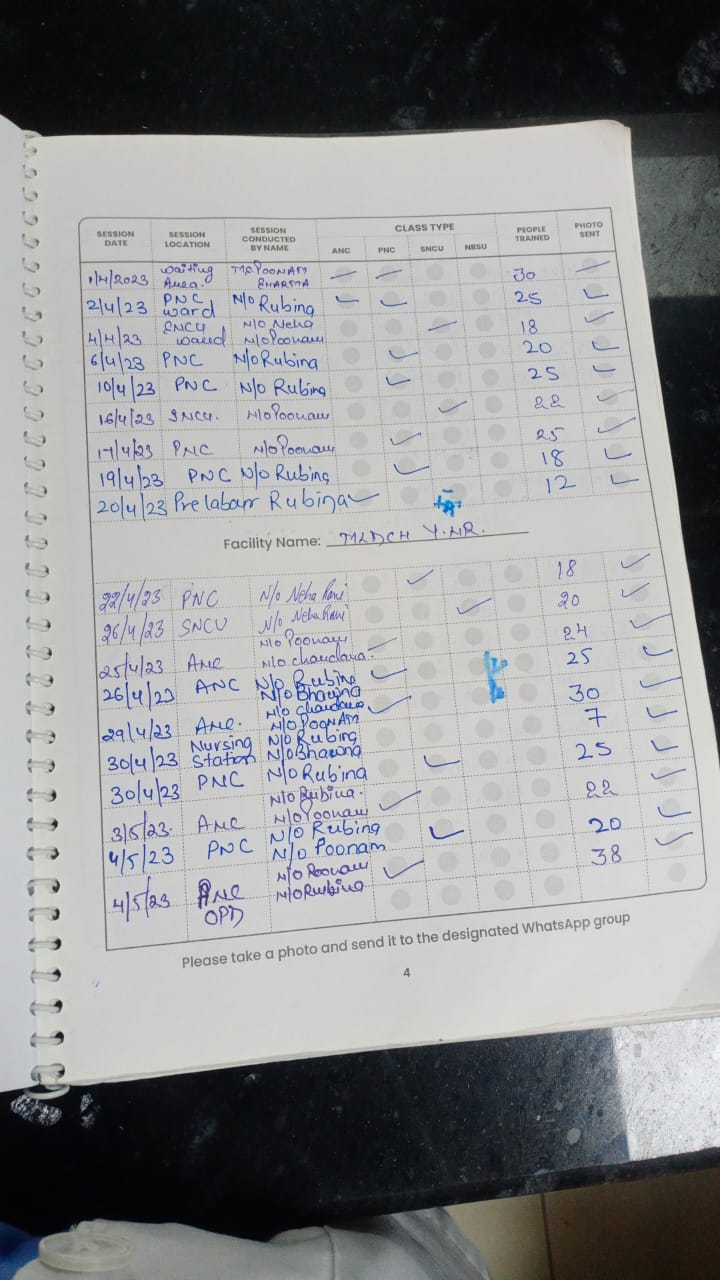 SESSION DATE SESSION LOCATION SESSION CONDUCTED BY NAME CLASS TYPE PEOPLE TRAINED PHOTO SENT
ANC PNC SNCU NBSU
1/4/2023 Waiting Area. POONAM SHARMA 30
2/4/23 PNC ward N/O Rubina 25
4/4/23 SNCU waud N/O Neha N/O Poonam 18
6/4/23 PNC N/O Rubina 20
10/4/23 PNC N/O Rubina 25
16/4/23 SNCU. N/O Poonam 22
17/4/23 PNC N/O Poonam 25
19/4/23 PNC N/O Rubina 18
20/4/23 Prelabour Rubina 12
Facility Name: MLDCH Y.NR.
22/4/23 PNC N/O Neha Rani 18
26/4/23 SNCU N/O Neha Rani 20
25/4/23 ANC N/O Poonam N/O chandana. 24
26/4/23 ANC N/O Rubina N/O Bhawna 25
29/4/23 ANC. N/O chandana N/O POONAM 30
30/4/23 Nursing Station N/O Rubina N/O Bhawna 7
30/4/23 PNC N/O Rubina 25
3/5/23. ANC N/O Rubina. N/O Poonam 22
4/5/23 PNC N/O Rubina N/O Poonam 20
4/5/23 ANC OPD N/O Poonam N/O Rubina 38
Please take a photo and send it to the designated WhatsApp group
4